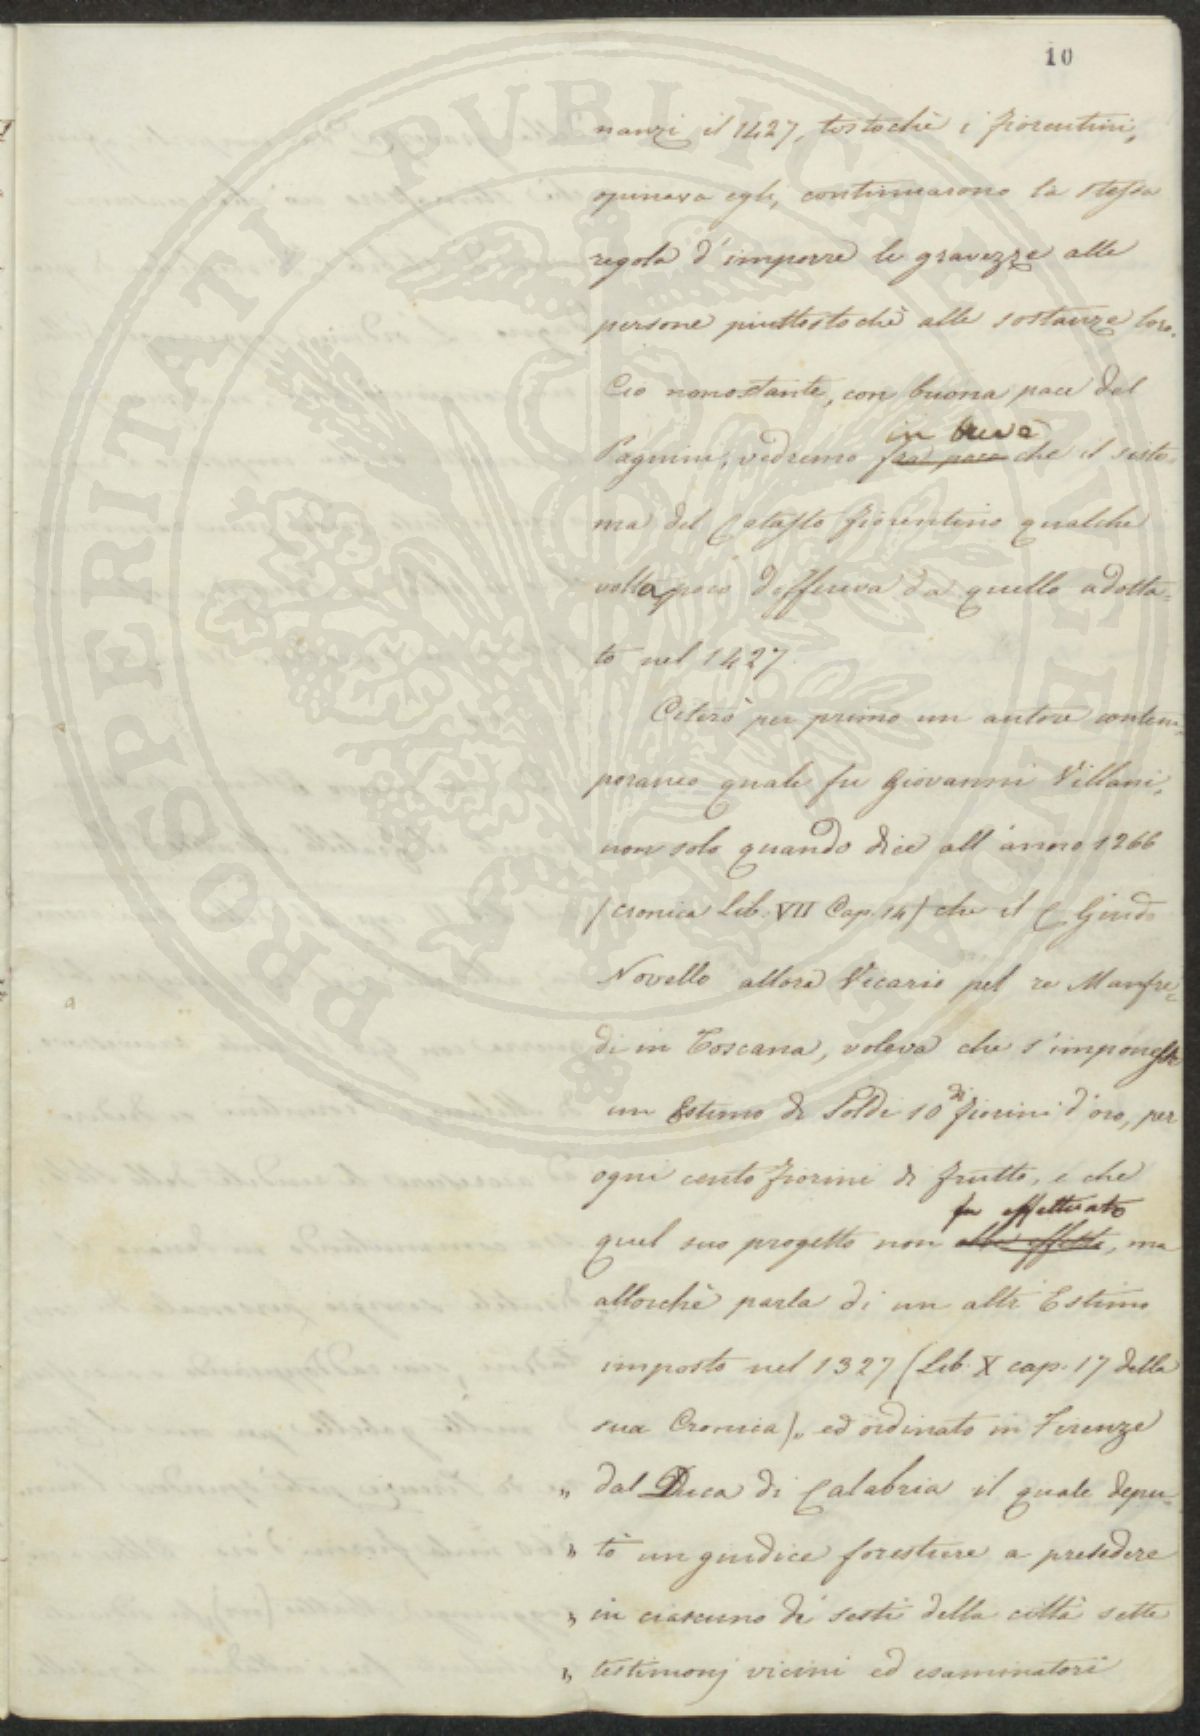 10
nanzi il 1427, tostochè i fiorentini,
opinava egli, continuarono la stessa
regola d'imporre le gravezze alle
persone piuttostochè alle sostanze loro.
Ciò nonostante, con buona pace del
in breve
Pagnini, vedremo fra poco che il siste-
ma del Catasto fiorentino qualche
volta poco differiva da quello adotta=
to nel 1427.
Citerò per primo un autore contem-
poraneo quale fu Giovanni Villani,
non solo quando dice all'anno 1266
(cronica Lib. VII Cap. 14) che il C Guido
Novello allora Vicario pel re Manfre=
di in Toscana, voleva che s'imponesse
un Estimo di Soldi 10 di fiorini d'oro, per
ogni cento fiorini di frutto, e che
fu effettuato
quel suo progetto non ebbe effetto, ma
allorchè parla di un altr' Estimo
imposto nel 1327 (Lib. X cap. 17 della
sua Cronica) „ ed ordinato in Firenze
„ dal Duca di Calabria il quale depu-
„ tò un giudice forestiere a presedere
„ in ciascuno di' sesti della città sette
„ testimonj vicini ed esaminatori
PROSPERITATI PUBLICAE AUGENDAE